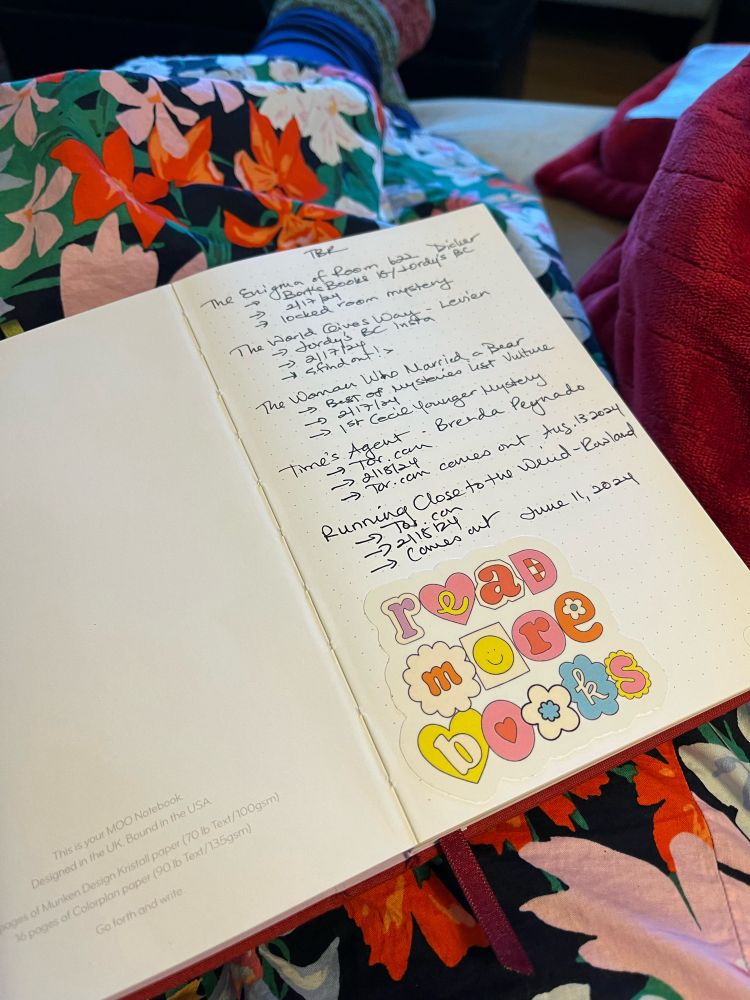 This is your MOO Notebook.
Designed in the UK. Bound in the USA.
pages of Munken Design Kristall paper (70 lb Text/100gsm)
16 pages of Colorplan paper (90 lb Text/135gsm)
Go forth and write.
TBR
The Enigma of Room 622 Dicker
→ Book's Books IG/Jordy's BC
→ 2/17/24
→ locked room mystery
The World Gives Way - Levien
→ Jordy's BC Insta
→ 2/17/24
→
The Woman Who Married a Bear
→ Best of Mysteries List Vulture
→ 2/17/24
→ 1st Cecil Younger Mystery
Time's Agent - Brenda Peynado
→ Tor.com
→ 2/18/24
→ Tor.com comes out Aug. 13 2024
Running Close to the Wind - Rowland
→ Tor.com
→ 2/18/24
→ Comes out June 11, 2024
read
more
books